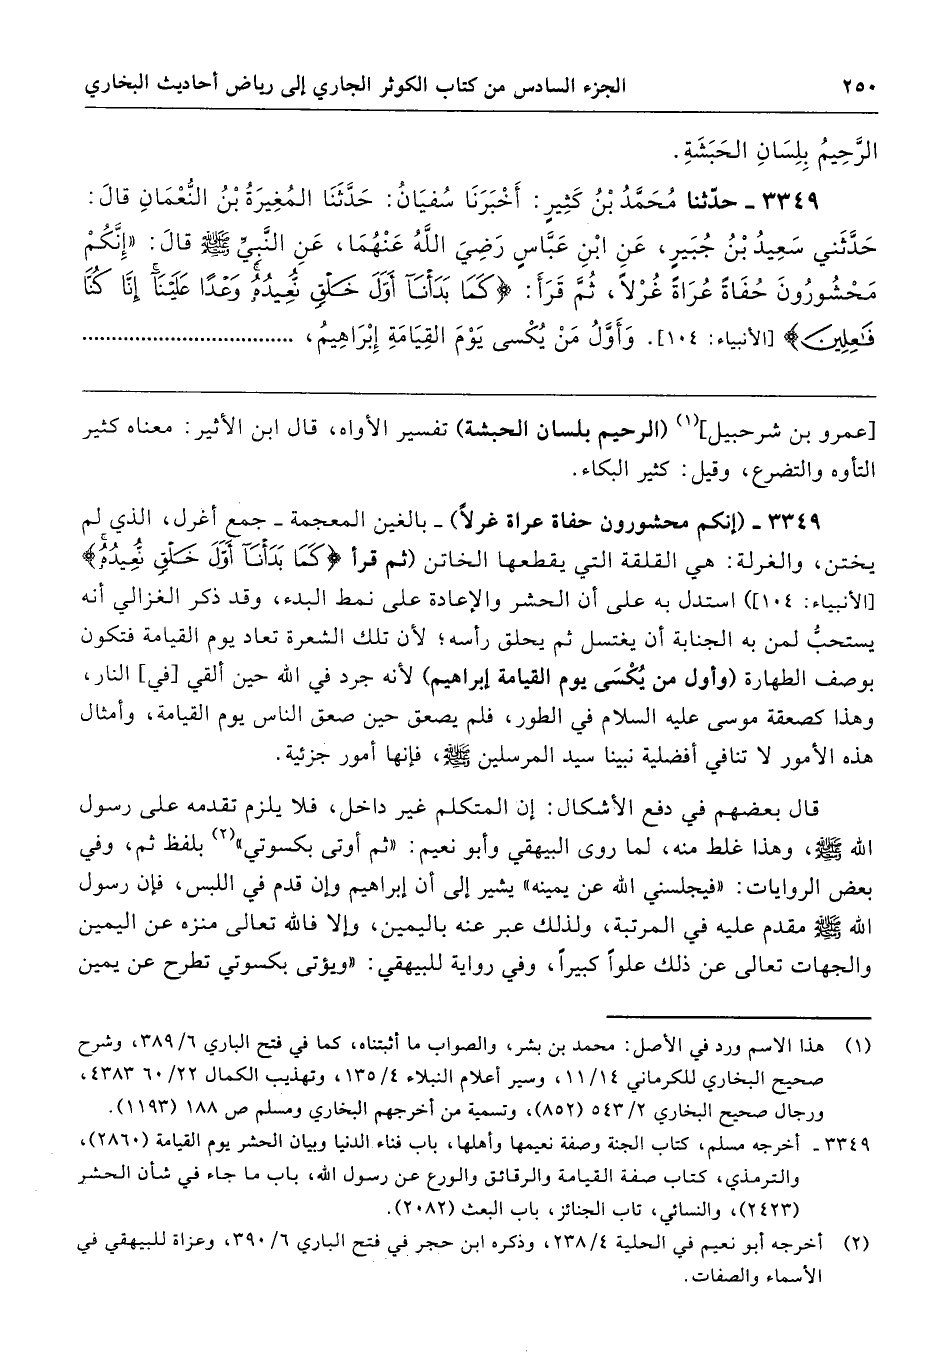 ٢٥٠ الجزء السادس من كتاب الكوثر الجاري إلى رياض أحاديث البخاري
الرَّحِيمُ بِلِسَانِ الحَبَشَةِ.
٣٣٤٩ ـ حدّثنا مُحَمَّدُ بْنُ كَثِيرٍ: أَخْبَرَنَا سُفيَانُ: حَدَّثَنَا المُغِيرَةُ بْنُ النُّعْمَانِ قالَ:
حَدَّثَني سَعِيدُ بْنُ جُبَيرٍ، عَنِ ابْنِ عَبَّاسٍ رَضِيَ اللَّهُ عَنْهُمَا، عَنِ النَّبِيِّ ﷺ قالَ: «إِنَّكُمْ
مَحْشُورُونَ حُفَاةً عُرَاةً غُرْلاً، ثُمَّ قَرَأَ: ﴿كَمَا بَدَأْنَآ أَوَّلَ خَلْقٍ نُّعِيدُهُۥ وَعْدًا عَلَيْنَآ إِنَّا كُنَّا
فَـٰعِلِينَ﴾ [الأنبياء: ١٠٤]. وَأَوَّلُ مَنْ يُكْسى يَوْمَ القِيَامَةِ إِبْرَاهِيمُ، ......................................
[عمرو بن شرحبيل](١) (الرحيم بلسان الحبشة) تفسير الأواه، قال ابن الأثير: معناه كثير
التأوه والتضرع، وقيل: كثير البكاء.
٣٣٤٩ ـ (إنكم محشورون حفاة عراة غرلاً) ـ بالغين المعجمة ـ جمع أغرل، الذي لم
يختن، والغرلة: هي القلفة التي يقطعها الخاتن (ثم قرأ ﴿كَمَا بَدَأْنَآ أَوَّلَ خَلْقٍ نُّعِيدُهُۥ﴾
[الأنبياء: ١٠٤]) استدل به على أن الحشر والإعادة على نمط البدء، وقد ذكر الغزالي أنه
يستحبُّ لمن به الجنابة أن يغتسل ثم يحلق رأسه؛ لأن تلك الشعرة تعاد يوم القيامة فتكون
بوصف الطهارة (وأول من يُكْسَى يوم القيامة إبراهيم) لأنه جرد في الله حين ألقي [في] النار،
وهذا كصعقة موسى عليه السلام في الطور، فلم يصعق حين صعق الناس يوم القيامة، وأمثال
هذه الأمور لا تنافي أفضلية نبينا سيد المرسلين ﷺ، فإنها أمور جزئية.
قال بعضهم في دفع الأشكال: إن المتكلم غير داخل، فلا يلزم تقدمه على رسول
الله ﷺ، وهذا غلط منه، لما روى البيهقي وأبو نعيم: «ثم أوتى بكسوتي»(٢) بلفظ ثم، وفي
بعض الروايات: «فيجلسني الله عن يمينه» يشير إلى أن إبراهيم وإن قدم في اللبس، فإن رسول
الله ﷺ مقدم عليه في المرتبة، ولذلك عبر عنه باليمين، وإلا فالله تعالى منزه عن اليمين
والجهات تعالى عن ذلك علواً كبيراً، وفي رواية للبيهقي: «ويؤتى بكسوتي تطرح عن يمين
(١) هذا الاسم ورد في الأصل: محمد بن بشر، والصواب ما أثبتناه، كما في فتح الباري ٣٨٩/٦، وشرح
صحيح البخاري للكرماني ١١/١٤، وسير أعلام النبلاء ١٣٥/٤، وتهذيب الكمال ٦٠/٢٢ ٤٣٨٣،
ورجال صحيح البخاري ٥٤٣/٢ (٨٥٢)، وتسمية من أخرجهم البخاري ومسلم ص ١٨٨ (١١٩٣).
٣٣٤٩ ـ أخرجه مسلم، كتاب الجنة وصفة نعيمها وأهلها، باب فناء الدنيا وبيان الحشر يوم القيامة (٢٨٦٠)،
والترمذي، كتاب صفة القيامة والرقائق والورع عن رسول الله، باب ما جاء في شأن الحشر
(٢٤٢٣)، والنسائي، تاب الجنائز، باب البعث (٢٠٨٢).
(٢) أخرجه أبو نعيم في الحلية ٢٣٨/٤، وذكره ابن حجر في فتح الباري ٣٩٠/٦، وعزاة للبيهقي في
الأسماء والصفات.